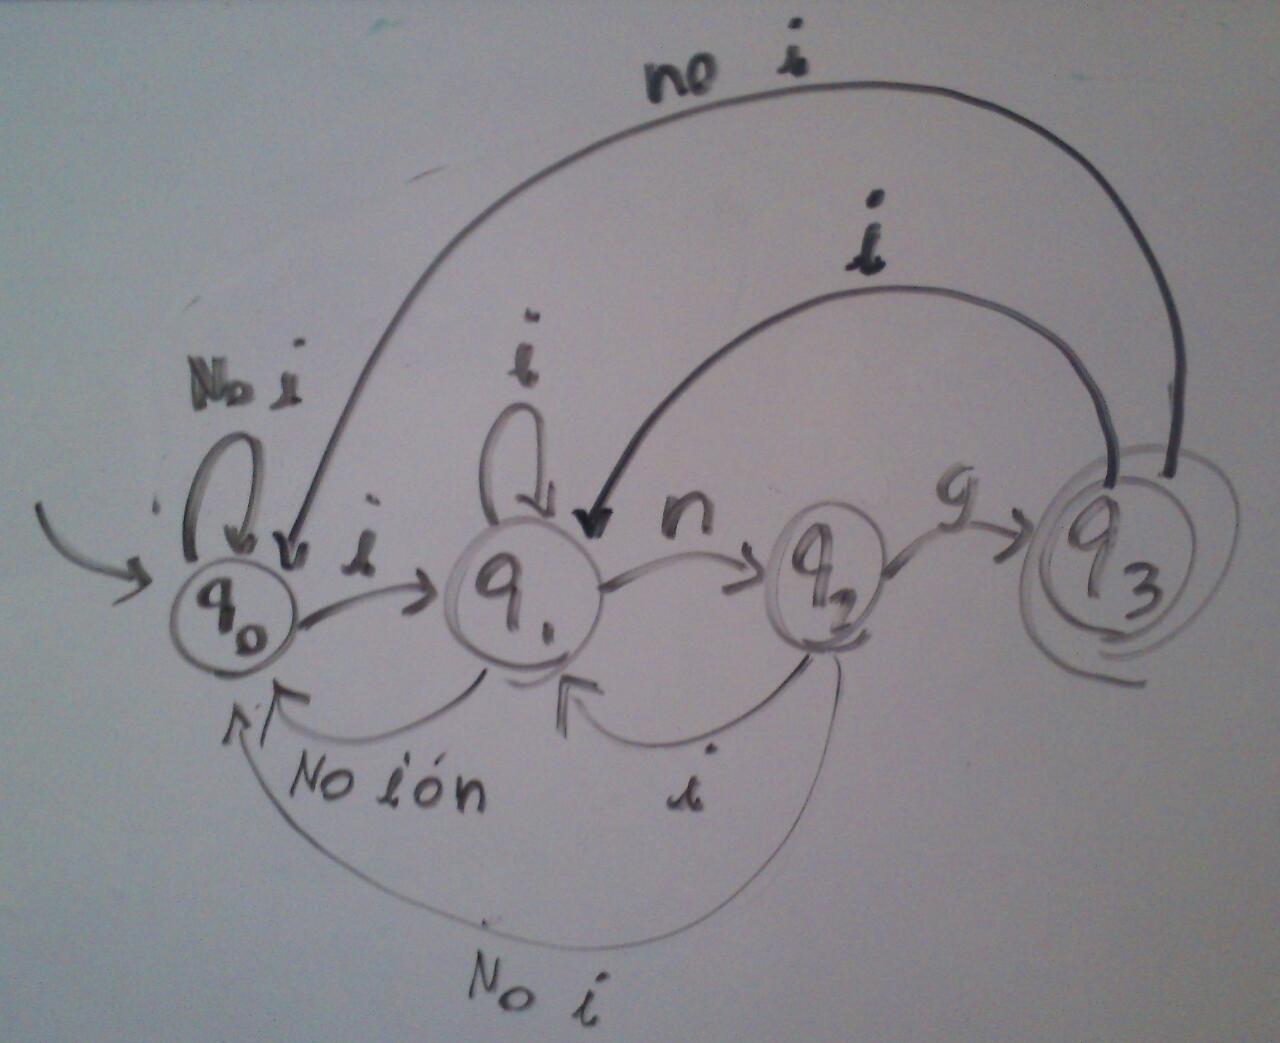 no i
i
i
No i
g
n
i
q0
q1
q2
q3
No i ó n
i
No i